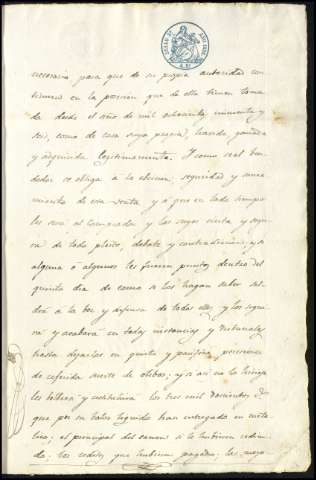 necesaria para que de su propia autoridad con
tinuen en la posesion que de ella tienen toma
da desde el año de mil ochocientos cincuenta y
seis, como de cosa suya propia, habida, ganada
y adquirida legitimamente. Y como real ben
dedor se obliga a la eviccion, seguridad y sanea
miento de esta venta y á que en todo tiempo
les será al Comprador y los suyos cierta y segu
ra de todo pleito, debate y contradiccion, y si
alguno ó algunos les fueren puestos, dentro del
quinto dia de como se los hagan saber sal
drá a la voz y defensa de todos ellos y los segui
rá y acabará en todas instancias y Tribunales
hasta dejarlos en quieta y pacifica posesion
de referida suerte de olibos, y si asi no lo hiciese
les bolbera y restituirá los tres mil doscientos
que por su balor liquido han entregado en meta
lico; el principal del censo si le hubieren redimi
do; los reditos que hubieren pagado; las mejo